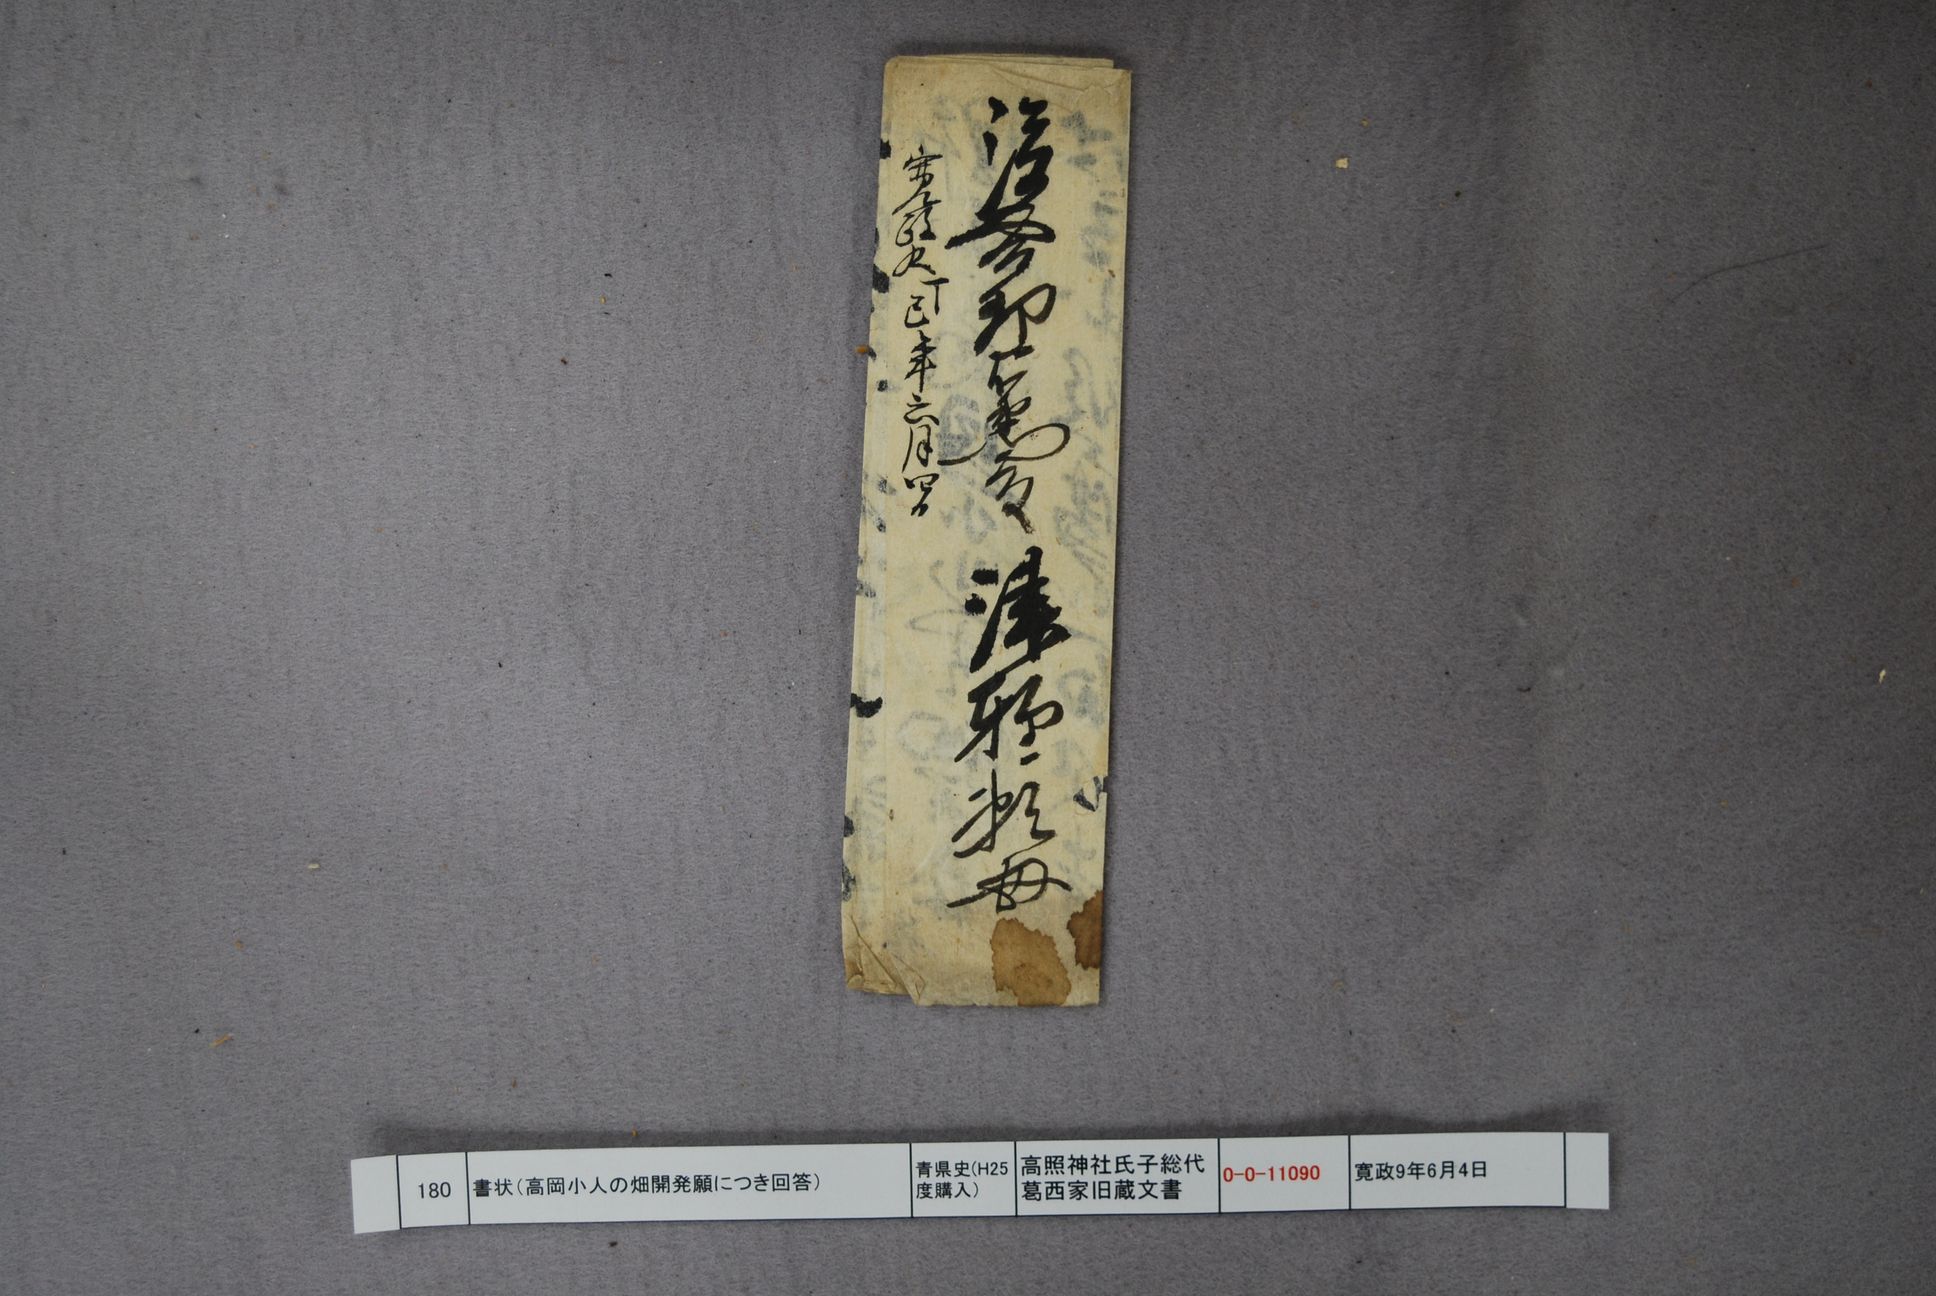 津軽頼母
寛政九丁巳年六月四日
180
書状（高岡小人の畑開発願につき回答）
青県史（H25
度購入）
高照神社氏子総代
葛西家旧蔵文書
0-0-11090
寛政9年6月4日